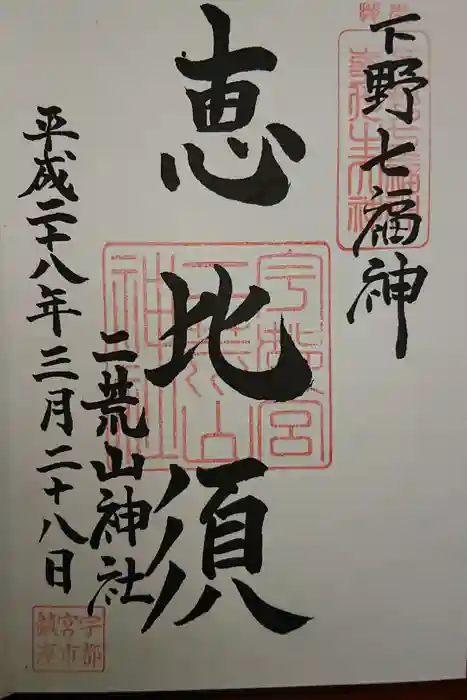 下野七福神
恵比須
二荒山神社
平成二十八年三月二十八日
宇都
宮市
鎮座
宇都宮
二荒山
神社